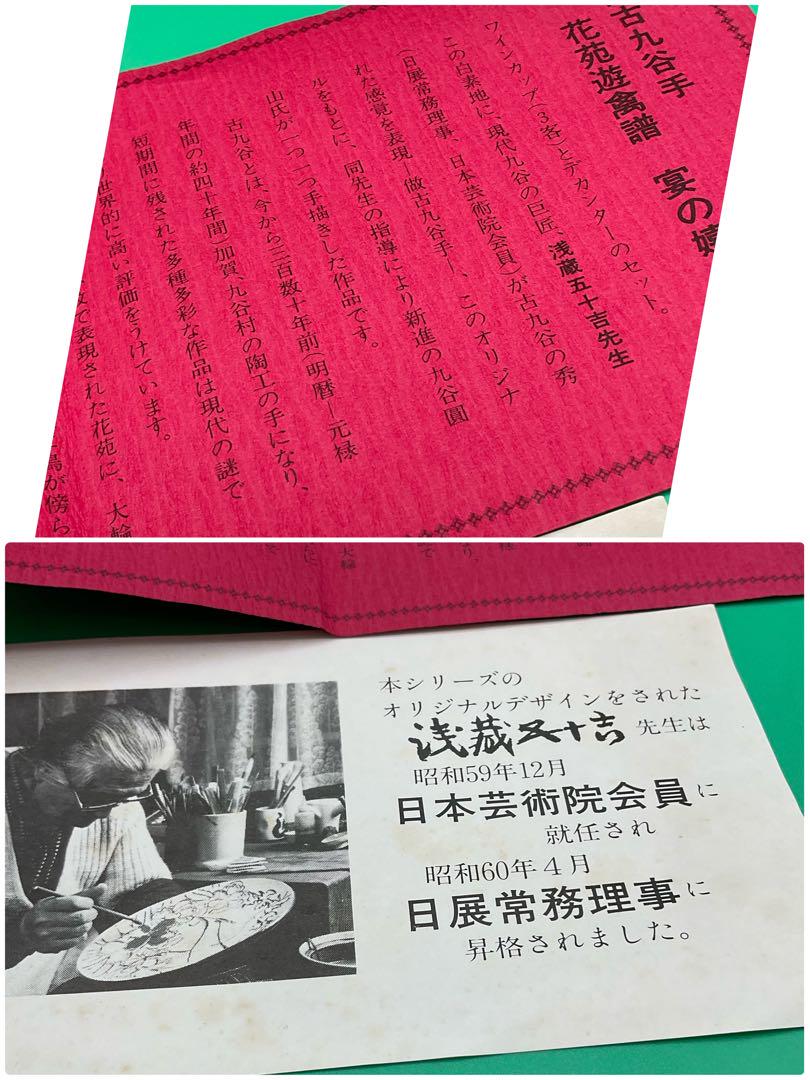 古九谷手
花苑遊禽譜 宴の
ワインカップ(3客)とデカンターのセット。
この白素地に、現代九谷の巨匠、浅蔵五十吉先生
(日展常務理事、日本芸術院会員)が古九谷の秀
れた感覚を表現―倣古九谷手―、このオリジナ
ルをもとに、同先生の指導により新進の九谷圓
山氏が一つ一つ手描きした作品です。
古九谷とは、今から三百数十年前(明暦―元禄
年間の約四十年間)加賀、九谷村の陶工の手になり、
短期間に残された多種多彩な作品は現代の謎で
世界的に高い評価をうけています。
で表現された花苑に、大輪
鳥が傍ら
本シリーズの
オリジナルデザインをされた
浅蔵五十吉先生は
昭和59年12月
日本芸術院会員に
就任され
昭和60年4月
日展常務理事に
昇格されました。